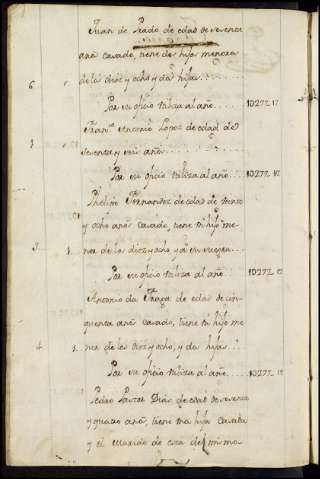 Juan de Prado de edad de sesenta
años casado, tiene dos hijos menores
de los diez y ocho, y dos hijas
6
Por su oficio utiliza al año 10272 17
Franco Antonio Lopez de edad de
sesenta y seis años
1
Por su oficio utiliza al año 10272 17
Phelipe Fernandez de edad de treinta
y ocho años casado, tiene un hijo me
nor de los diez y ocho, y a su suegra
5 1
Por su oficio utiliza al año 10272 17
Antonio da Fraga de edad de cin
quenta años casado, tiene un hijo me
nor de los diez y ocho, y dos hijas
4 1
Por su oficio utiliza al año 10272 17
Pedro Pastor Dias de edad de sesenta
y quatro años, tiene una hija casada
y el marido de esta del mismo